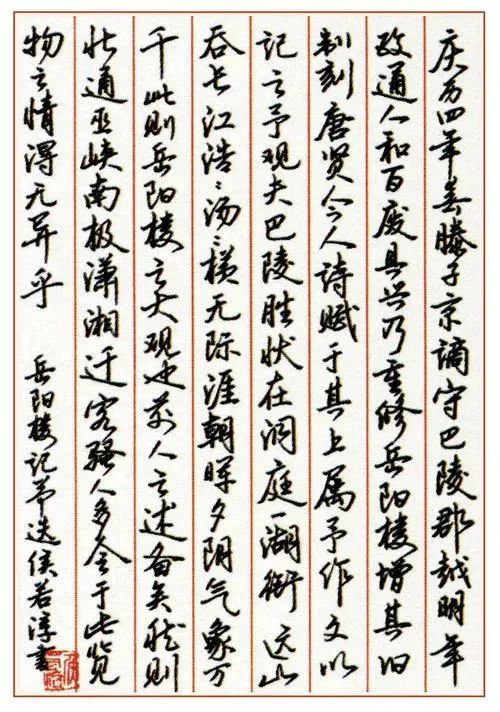 庆历四年春滕子京谪守巴陵郡越明年
政通人和百废具兴乃重修岳阳楼增其旧
制刻唐贤今人诗赋于其上属予作文以
记之予观夫巴陵胜状在洞庭一湖衔远山
吞长江浩〻汤〻横无际涯朝晖夕阴气象万
千此则岳阳楼之大观也前人之述备矣然则
北通巫峡南极潇湘迁客骚人多会于此览
物之情得无异乎 岳阳楼记节选侯若淳书